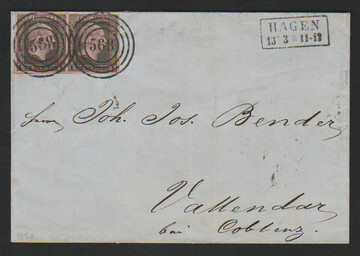 568 568
HAGEN
13 3 * 11-12
Herrn Joh. Jos. Bender
Vallendar
bei Coblenz.